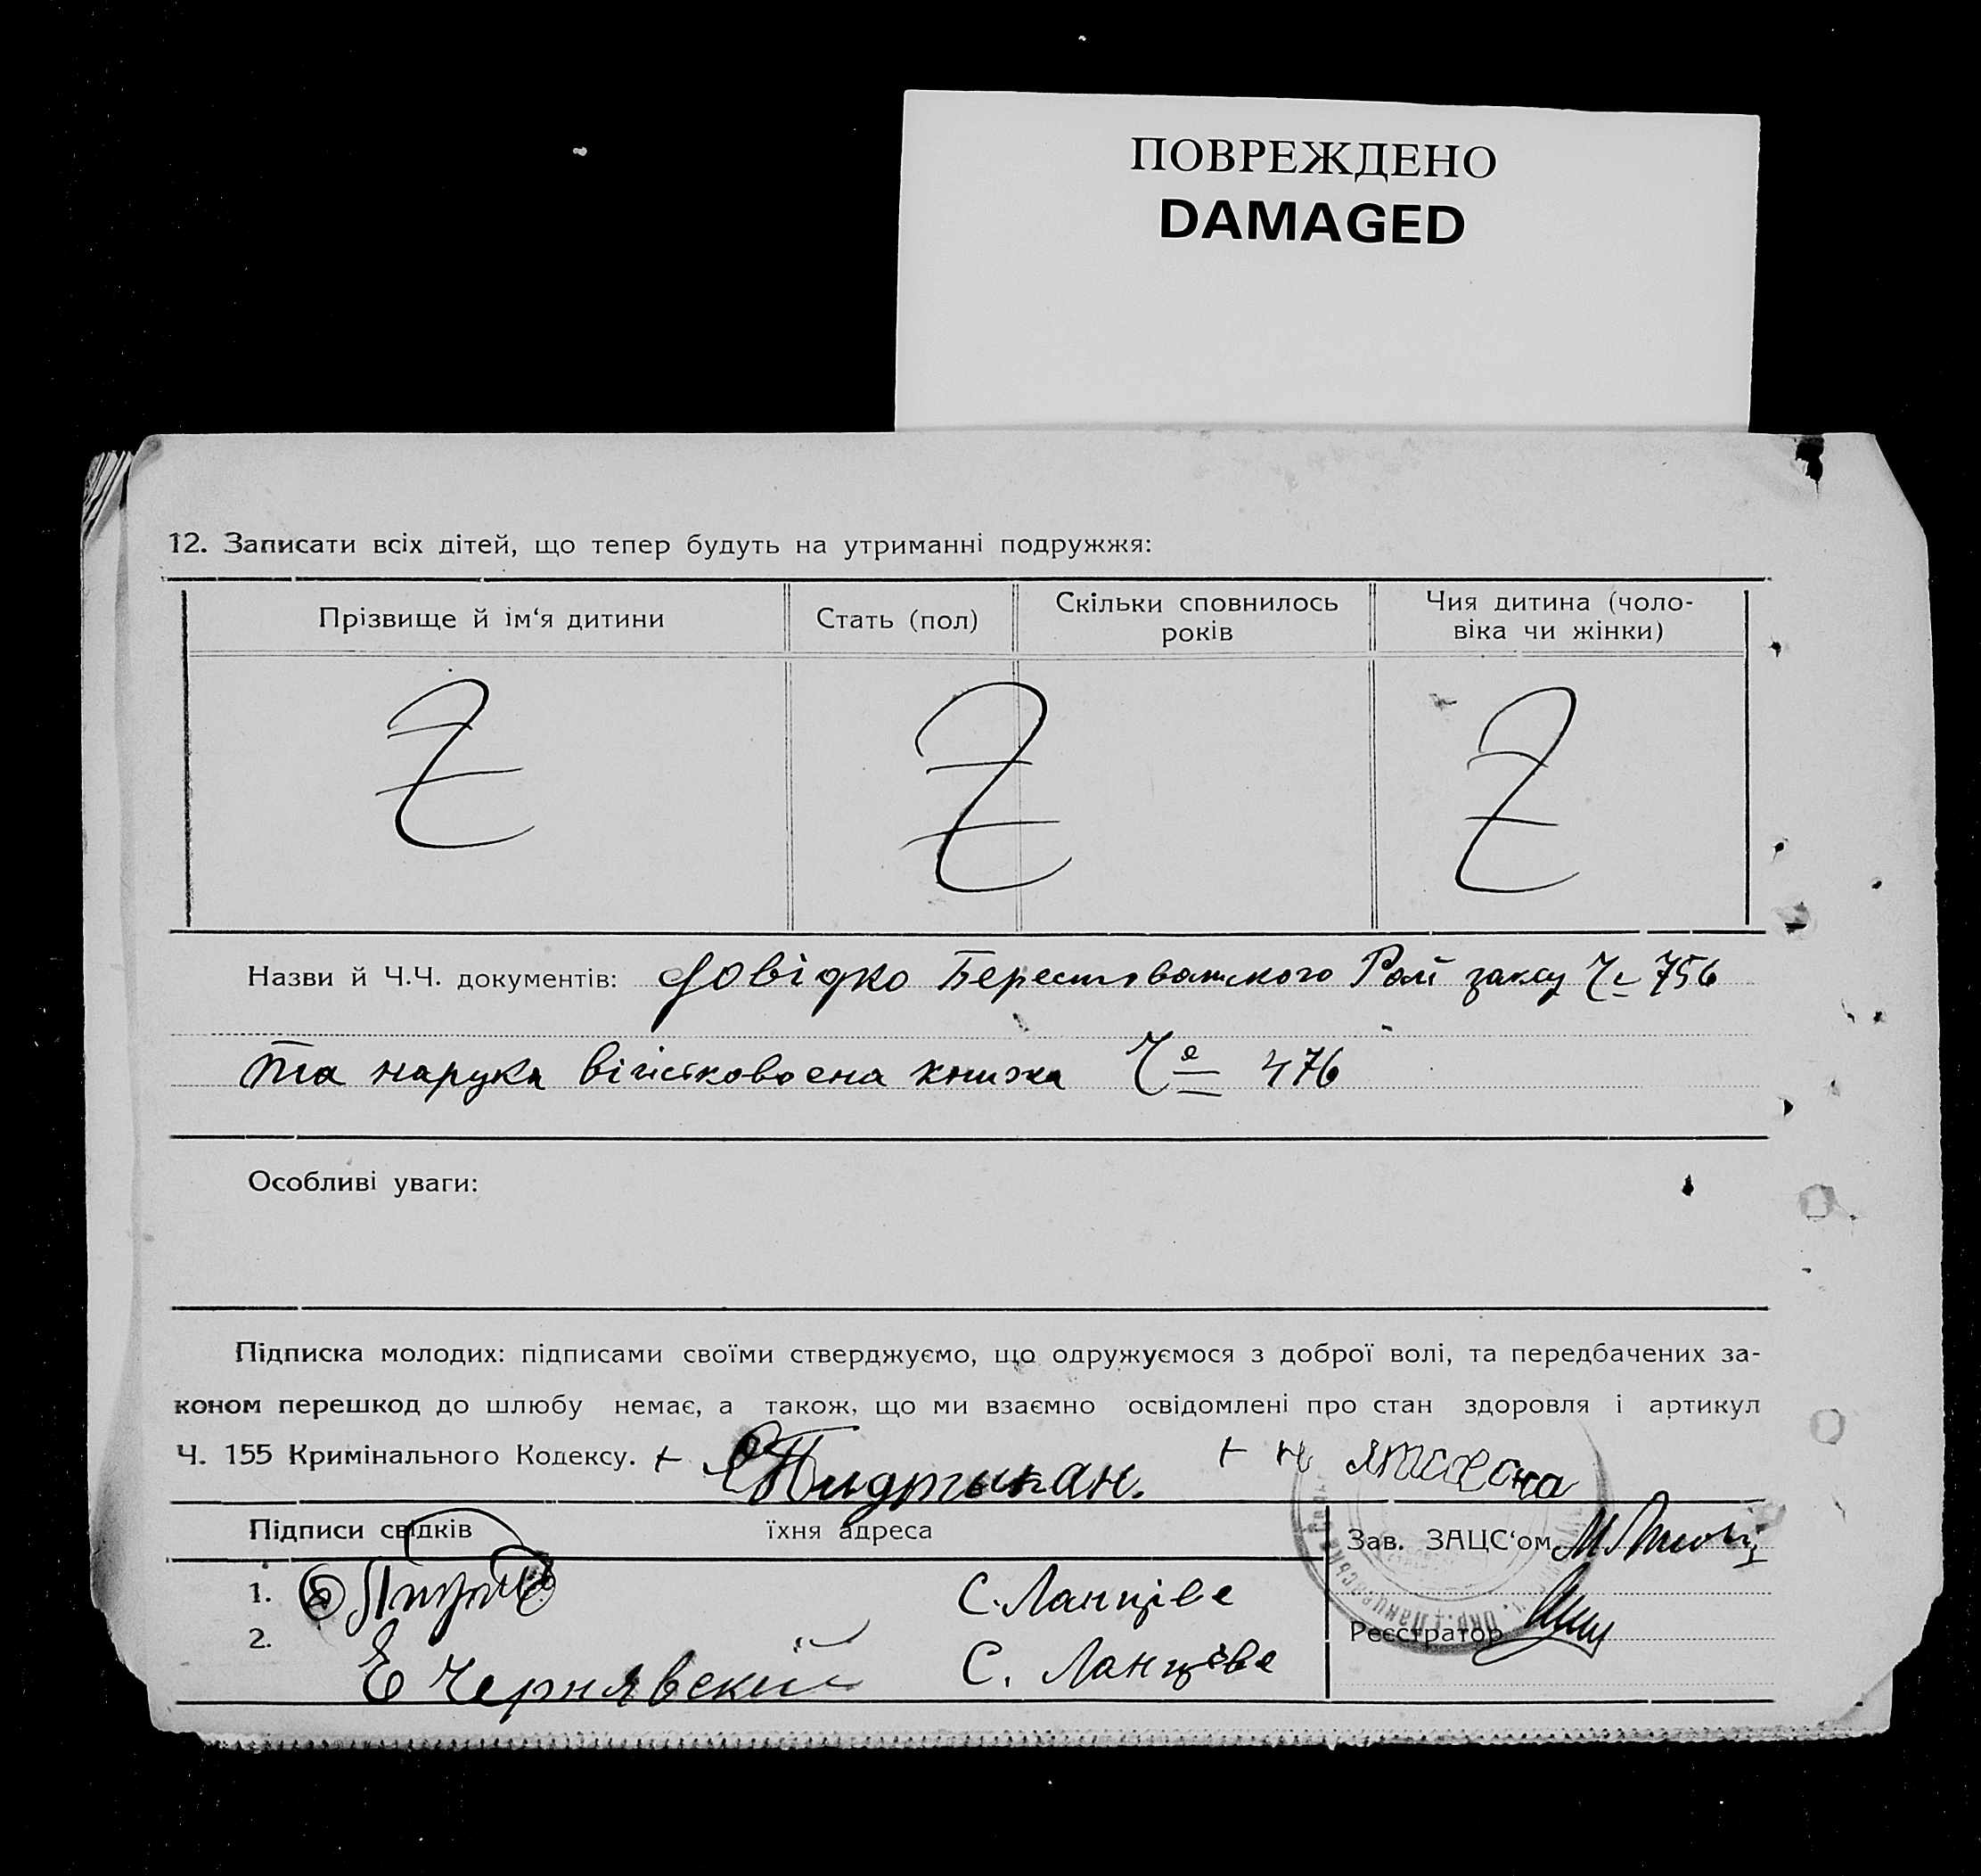 ПОВРЕЖДЕНО
DAMAGED
12. Записати всіх дітей, що тепер будуть на утриманні подружжя:
Прізвище й ім‘я дитини
Стать (пол)
Скільки сповнилось
років
Чия дитина (чоло-
віка чи жінки)
Z Z Z
Назви й Ч.Ч. документів: довідко Берестованского Рай загсу Ч 756
та книжка Ч 476
Особливі уваги:
Підписка молодих: підписами своїми стверджуємо, що одружуємося з доброї волі, та передбачених за-
коном перешкод до шлюбу немає, а також, що ми взаємно освідомлені про стан здоровля і артикул
Ч. 155 Кримінального Кодексу. + +
Підписи свідків
їхня адреса
Зав. ЗАЦС‘ом
1. С. Ланціве
Реєстратор
2. Е Чернявский С. Ланціве